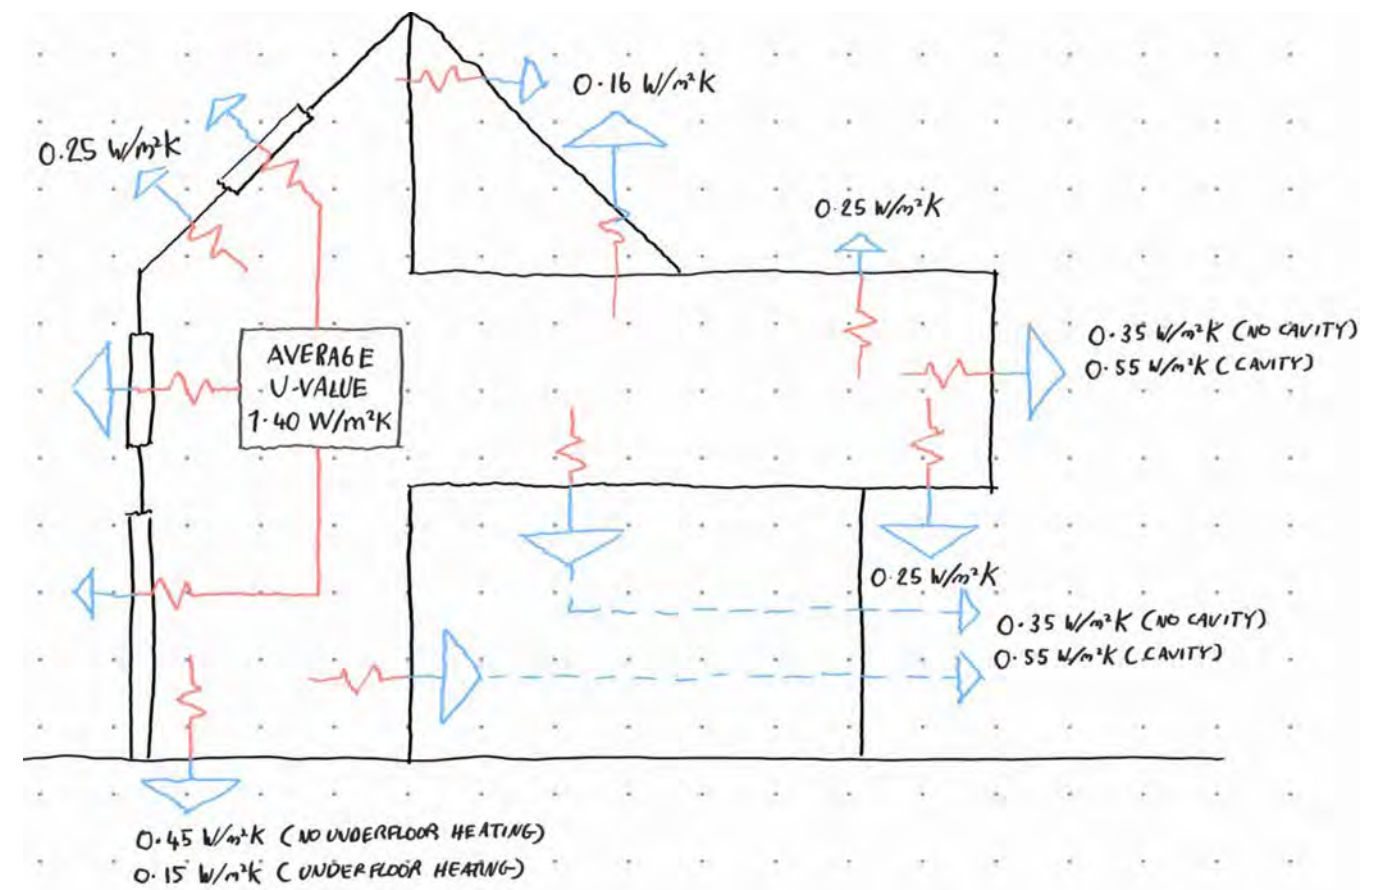 0.16 W/m²K
0.25 W/m²K
0.25 W/m²K
AVERAGE
U-VALUE
1.40 W/m²K
0.35 W/m²K (NO CAVITY)
0.55 W/m²K (CAVITY)
0.25 W/m²K
0.35 W/m²K (NO CAVITY)
0.55 W/m²K (CAVITY)
0.45 W/m²K (NO UNDERFLOOR HEATING)
0.15 W/m²K (UNDERFLOOR HEATING)